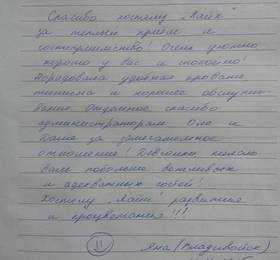 Спасибо хостелу "Лайк"
за теплый приём и
гостеприимство! Очень уютно
хорошо у вас и спокойно!
Порадовала удобная кровать
тишина и хорошее обслужи-
вание. Отдельное спасибо
администраторам Оле и
Даше за замечательное
отношение! Девчонки, желаю
вам побольше вежливых
и адекватных гостей!
Хостелу "Лайк" развития
и процветания!!!
Яна (Владивосток)